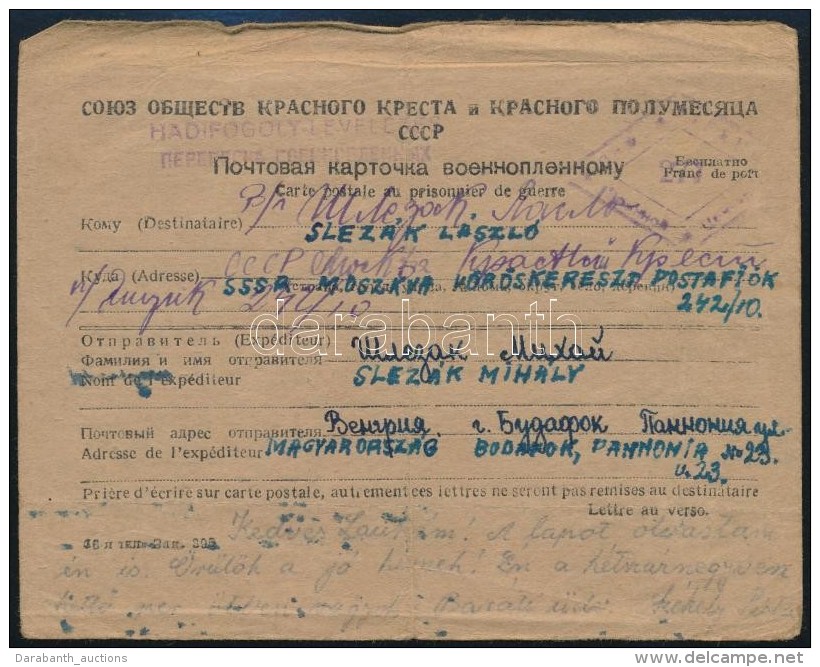 СОЮЗ ОБЩЕСТВ КРАСНОГО КРЕСТА и КРАСНОГО ПОЛУМЕСЯЦА
СССР
HADIFOGOLY-LEVELEZŐ
Почтовая карточка военнопленному
Бесплатно
Franc de port
Carte postale au prisonnier de guerre
Кому (Destinataire) в/п Шлезак Ласло
SLEZÁK LÁSZLÓ
Куда (Adresse) СССР Москва Красный Крест
SSSR MOSZKVA VÖRÖSKERESZT POSTAFIÓK
п/ящик 242/10
242/10.
Отправитель (Expéditeur)
Фамилия и имя отправителя Шлезак Михай
Nom de l'expéditeur SLEZÁK MIHÁLY
Почтовый адрес отправителя Венгрия. г. Будафок Паннония ул.
№ 23.
Adresse de l'expéditeur MAGYARORSZÁG BUDAFOK, PANNONIA
u. 23.
Prière d'écrire sur carte postale, autrement ces lettres ne seront pas remises au destinataire
Lettre au verso.
Kedves ! A lapot olvastam
én is. Örülök a jó hírnek! Én a
darabanth
Darabanth_auctions
delcampe.net